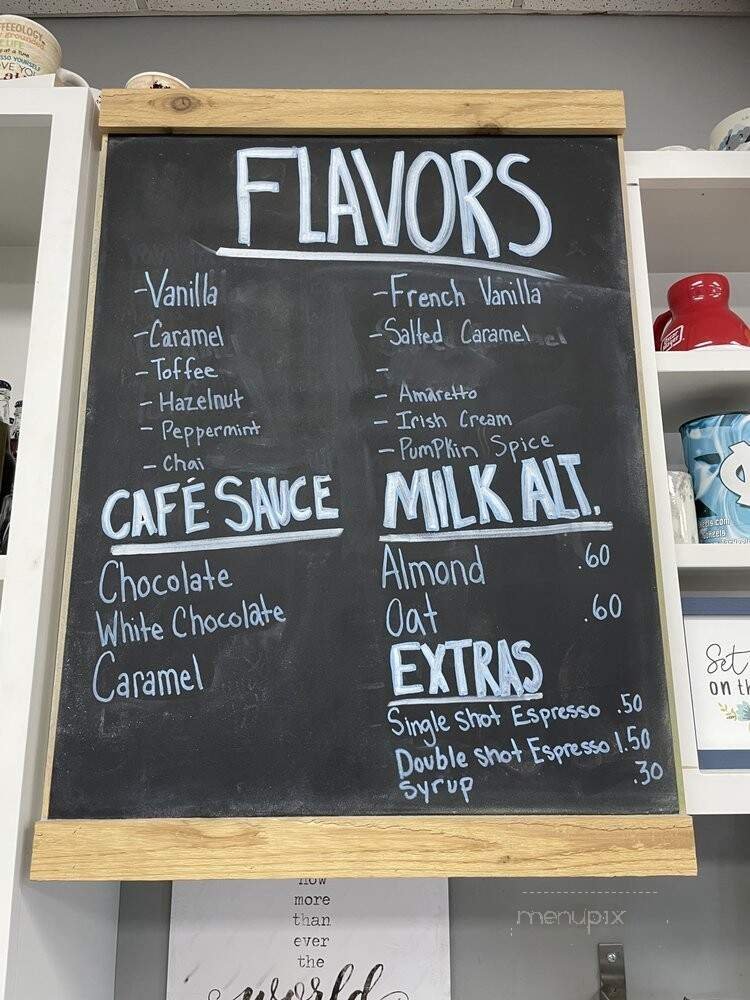 FLAVORS
-Vanilla
-Caramel
-Toffee
-Hazelnut
-Peppermint
-Chai
-French Vanilla
-Salted Caramel
-
-Amaretto
-Irish Cream
-Pumpkin Spice
CAFÉ SAUCE
Chocolate
White Chocolate
Caramel
MILK ALT.
Almond .60
Oat .60
EXTRAS
Single shot Espresso .50
Double shot Espresso 1.50
syrup .30
now
more
than
ever
the
world
Set
on th
menupix